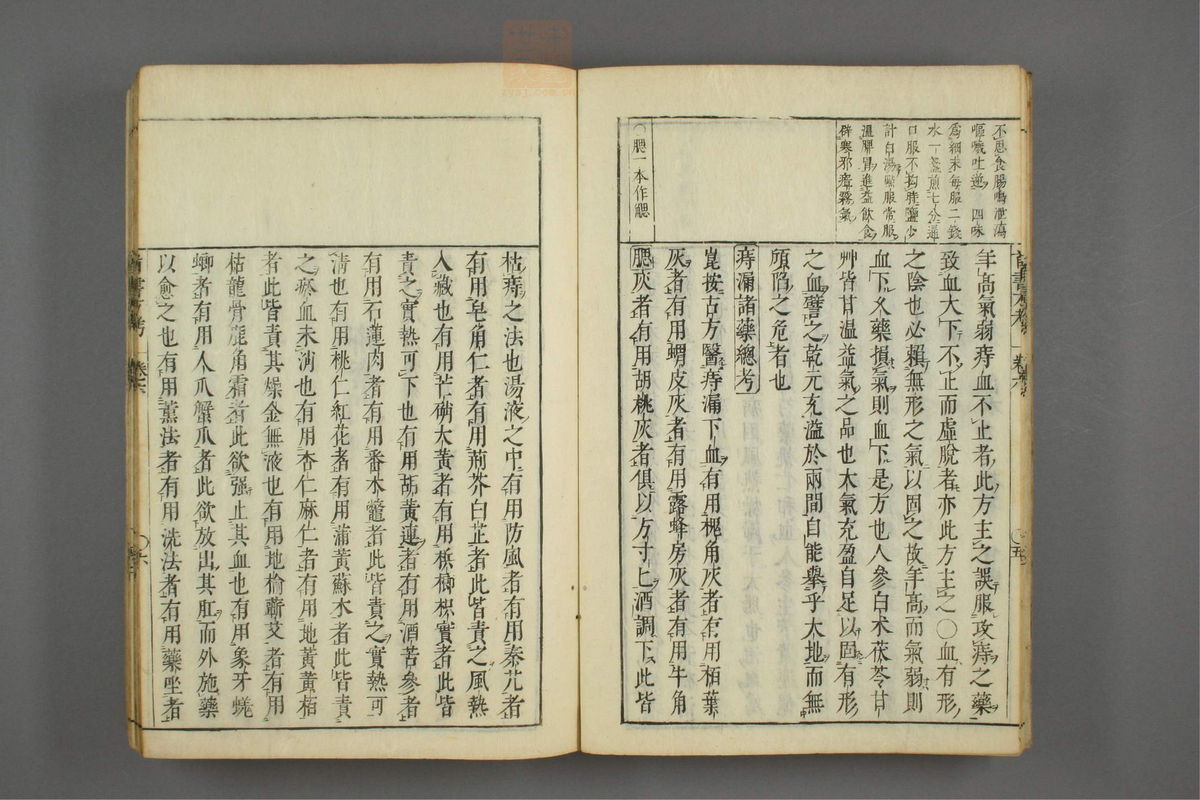 不思食腸鳴泄瀉
嘔噦吐逆 四味
爲細末每服二錢
水一盞煎七分溫
口服不拘時鹽少
計白湯點服常服
溫脾胃進益飲食
辟寒邪瘴霧氣
〇腮一本作䚡
年髙氣弱痔血不止者此方主之誤服攻痔之藥
致血大下不止而虛脫者亦此方主之〇血有形
之陰也必賴無形之氣以固之故年髙而氣弱則
血下攻藥損氣則血下是方也人參白术茯苓甘
艸皆甘温益氣之品也大氣充盈自足以固有形
之血譬之乾元充溢於兩間自能舉乎大地而無
傾陷之危者也
痔漏諸藥總考
崑按古方醫痔漏下血有用槐角灰者有用栢葉
灰者有用蝟皮灰者有用露蜂房灰者有用牛角
腮灰者有用胡桃灰者俱以方寸匕酒調下此皆
枯痔之法也湯液之中有用防風者有用秦艽者
有用皂角仁者有用荊芥白芷者此皆責之風熱
入藏也有用芒硝大黄者有用檳榔枳實者此皆
責之實熱可下也有用胡黃連者有用酒苦參者
有用石蓮肉者有用番木鱉者此皆責之實熱可
清也有用桃仁紅花者有用蒲黃蘇木者此皆責
之瘀血未消也有用杏仁麻仁者有用地黃黃栢
者此皆責其燥金無液也有用地榆蘄艾者有用
枯龍骨鹿角霜者此欲强止其血也有用象牙蜣
螂者有用人爪蟹爪者此欲放出其肛而外施藥
以愈之也有用薰法者有用洗法者有用藥坐者